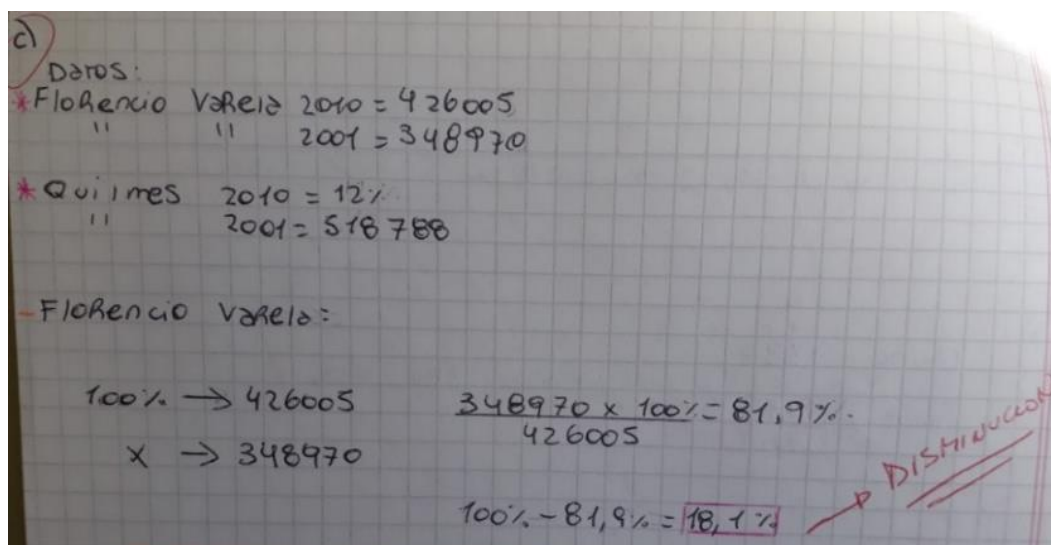 c)
Datos:
* Florencio Varela 2010 = 426005
" " 2001 = 348970
* Quilmes 2010 = 12%
" 2001 = 518788
- Florencio Varela:
100% → 426005
x → 348970
348970 x 100% = 81,9%.
426005
100% - 81,9% = 18,1%
→ DISMINUCION